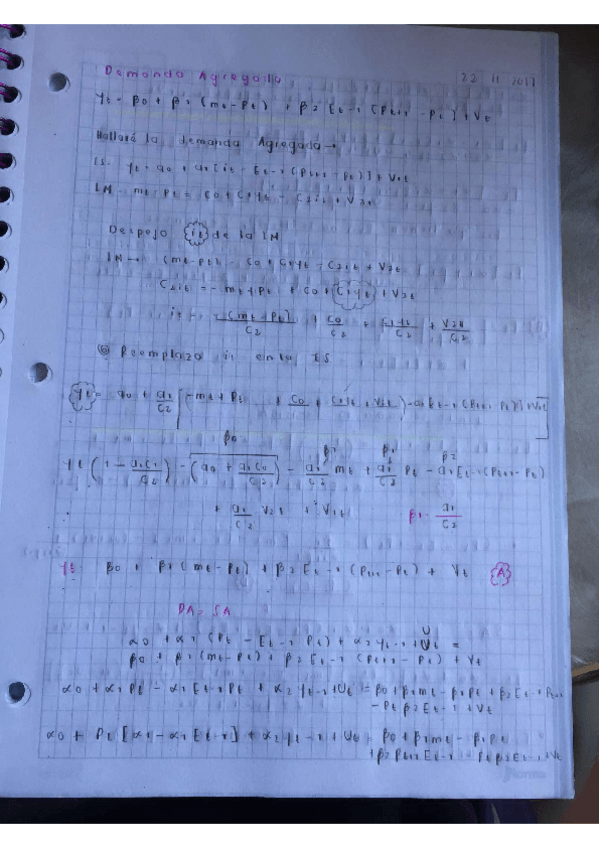 Demanda Agregada 22 11 2017
yt = β0 + β1 (mt - pt) + β2 Et-1 (pt+1 - pt) + Vt
Hallará la demanda Agregada →
IS. yt = a0 + a1 [it - Et-1 (pt+1 - pt)] + V1t
LM - mt - pt = c0 + c1yt - c2it + V2t
Despejo it de la LM
LM → (mt - pt) = c0 + c1yt - c2it + V2t
c2it = - mt + pt + c0 + c1yt + V2t
it = - (mt - pt)/c2 + c0/c2 + c1yt/c2 + V2t/c2
Reemplazo it en la IS
yt = a0 + a1/c2 [-mt + pt + c0 + c1yt + V2t) - a1 Et-1 (pt+1 - pt)] + V1t
β0 β1 β1 β2
yt (1 - a1c1/c2) = (a0 + a1c0/c2) - a1/c2 mt + a1/c2 pt - a1 Et-1 (pt+1 - pt)
+ a1/c2 V2t + V1t β1 - a1/c2
yt = β0 + β1 (mt - pt) + β2 Et-1 (pt+1 - pt) + Vt (A)
DA = SA
α0 + α1 (pt - Et-1 pt) + α2 yt-1 + Ut =
β0 + β1 (mt - pt) + β2 Et-1 (pt+1 - pt) + Vt
α0 + α1 pt - α1 Et-1 pt + α2 yt-1 + Ut = β0 + β1mt - β1pt + β2 Et-1 pt+1
- pt β2 Et-1 + Vt
α0 + pt [α1 - α1 Et-1] + α2 yt-1 + Ut = β0 + β1mt - β1pt
+ β2 pt+1 Et-1 - pt β2 Et-1 + Vt